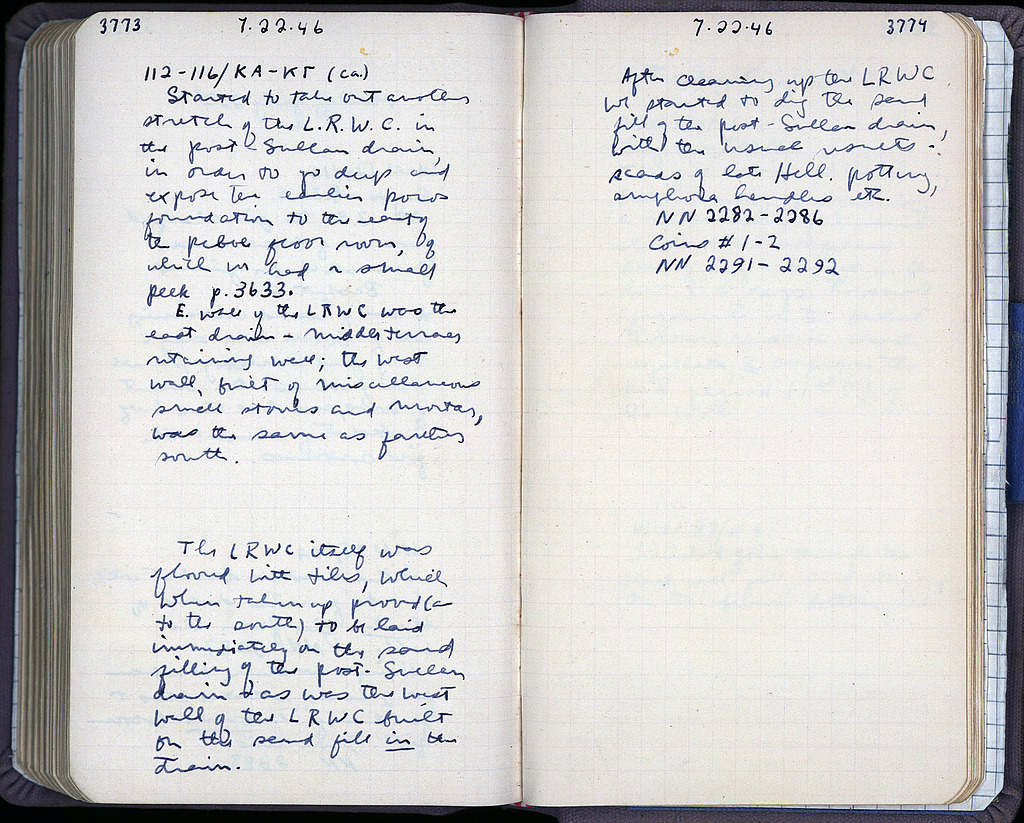 3773
7.22.46
112-116/ΚΑ-ΚΓ (ca.)
Started to take out another
stretch of the L.R.W.C. in
the post-Sullan drain,
in order to go deep and
expose the earlier poros
foundation to the east of
the pebble floor room, of
which we had a small
peek p. 3633.
E. wall of the LRWC was the
east drain - middle terrace
retaining wall; the west
wall, built of miscellaneous
small stones and mortar,
was the same as farther
south.
The LRWC itself was
floored with tiles, which
when taken up proved (as
to the south) to be laid
immediately on the sand
filling of the post-Sullan
drain & as was the west
wall of the LRWC built
on the sand fill in the
drain.
7.22.46
3774
After cleaning up the LRWC
we started to dig the sand
fill of the post-Sullan drain,
with the usual results -
scads of late Hell. pottery,
amphora handles etc.
NN 2282-2286
Coins #1-2
NN 2291-2292